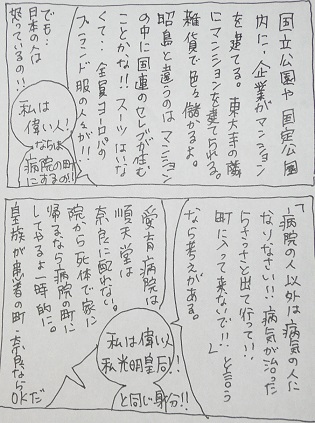 国立公園や国定公園
内に、企業がマンション
を建てる。東大寺の隣
にマンションを建てられる。
雑貨で色々儲かるよ。
昭島と違うのはマンション
の中に国連のセレブが住む
ことかな!!スーツはいな
くて…全員ヨーロッパの
ブランド服の人々が!!
でも…
日本の人は
怒っているの…!!
私は
偉い人!
ならは
病院の町
にするのが!!
「病院の人以外は病気の人に
なりなさい!!病気が治った
らさっさと出て行って!!
町に入って来ないで!!」と言う
なら考えがある。
愛育病院は
順天堂は
奈良に配れない。
院から死体で家に
帰るなら病院の町に
してやるよ一時的に。
皇族が患者の町・奈良なら
OKだ
私は偉い人!
私光明皇后!!
と同じ身分!!